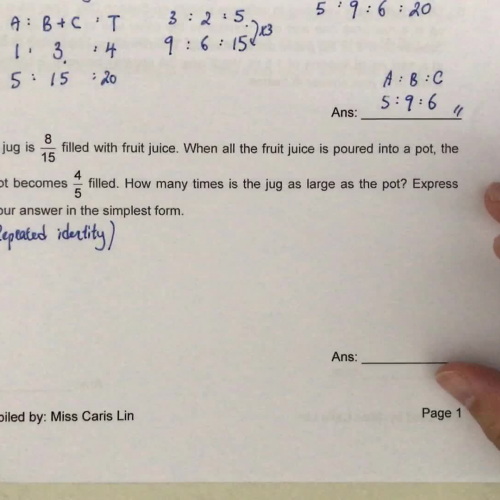 A : B + C : T
1 : 3 : 4
5 : 15 : 20
3 : 2 : 5
9 : 6 : 15 x3
5 : 9 : 6 : 20
A : B : C
Ans: 5 : 9 : 6
jug is 8/15 filled with fruit juice. When all the fruit juice is poured into a pot, the
becomes 4/5 filled. How many times is the jug as large as the pot? Express
answer in the simplest form.
Repeated identity)
Ans:
by: Miss Caris Lin
Page 1